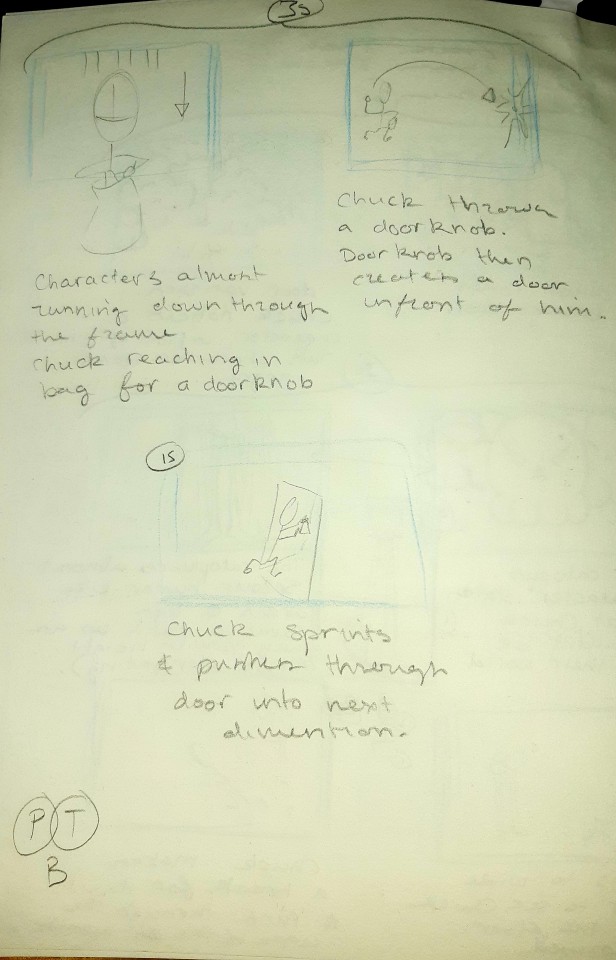 3s
Characters almost
running down through
the frame
Chuck reaching in
bag for a doorknob
Chuck throws
a doorknob.
Doorknob then
creates a door
infront of him.
1s
Chuck sprints
& pushes through
door into next
dimention.
P T
B